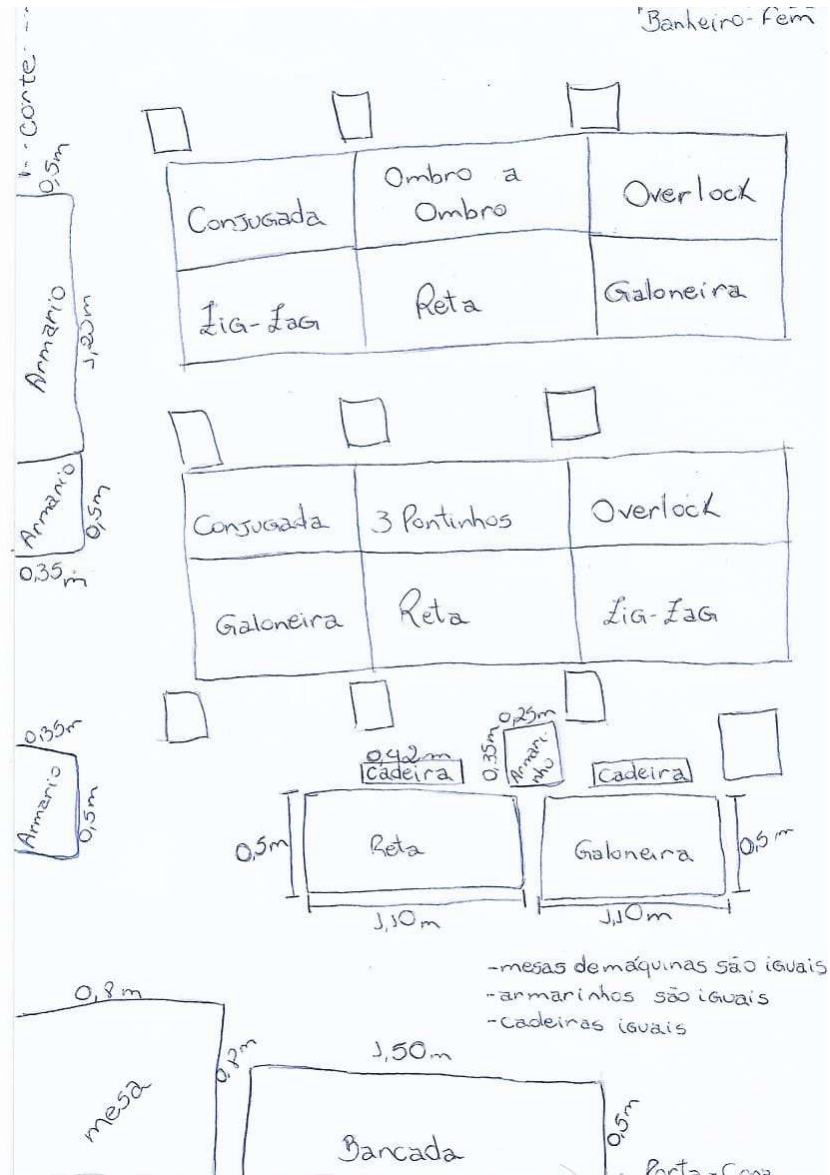 Banheiro-Fem
corte
0,5m
Armario
1,20m
Armario
0,5m
0,35m
Conjugada
Ombro a
Ombro
Overlock
Zig-Zag
Reta
Galoneira
Conjugada
3 Pontinhos
Overlock
Galoneira
Reta
Zig-Zag
0,35m
Armario
0,5m
0,42m
Cadeira
0,25m
0,35m
Armari-
nho
Cadeira
0,5m
Reta
1,10m
Galoneira
0,5m
1,10m
-mesas de máquinas são iguais
-armarinhos são iguais
-cadeiras iguais
0,8m
mesa
0,8m
1,50m
Bancada
0,5m